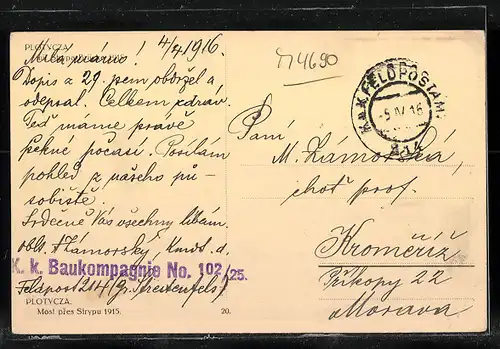 PLOTYCZA.
4/4 1916.
Milá mámo!
Dopis z 29. jsem obdržel a
odepsal. Celkem zdráv.
Teď máme právě
pěkné počasí. Posílám
pohled z našeho pů-
sobiště.
Srdečně Vás všechny líbám
Zámorský,
K. k. Baukompagnie No. 102/25.
Feldpost 214
PLOTYCZA.
Most přes Strypu 1915.
20.
K.u.K. FELDPOSTAMT
-5 IV 16
214
Paní
M. Zámorská,
choť prof.
Kroměříž
Příkopy 22
Morava